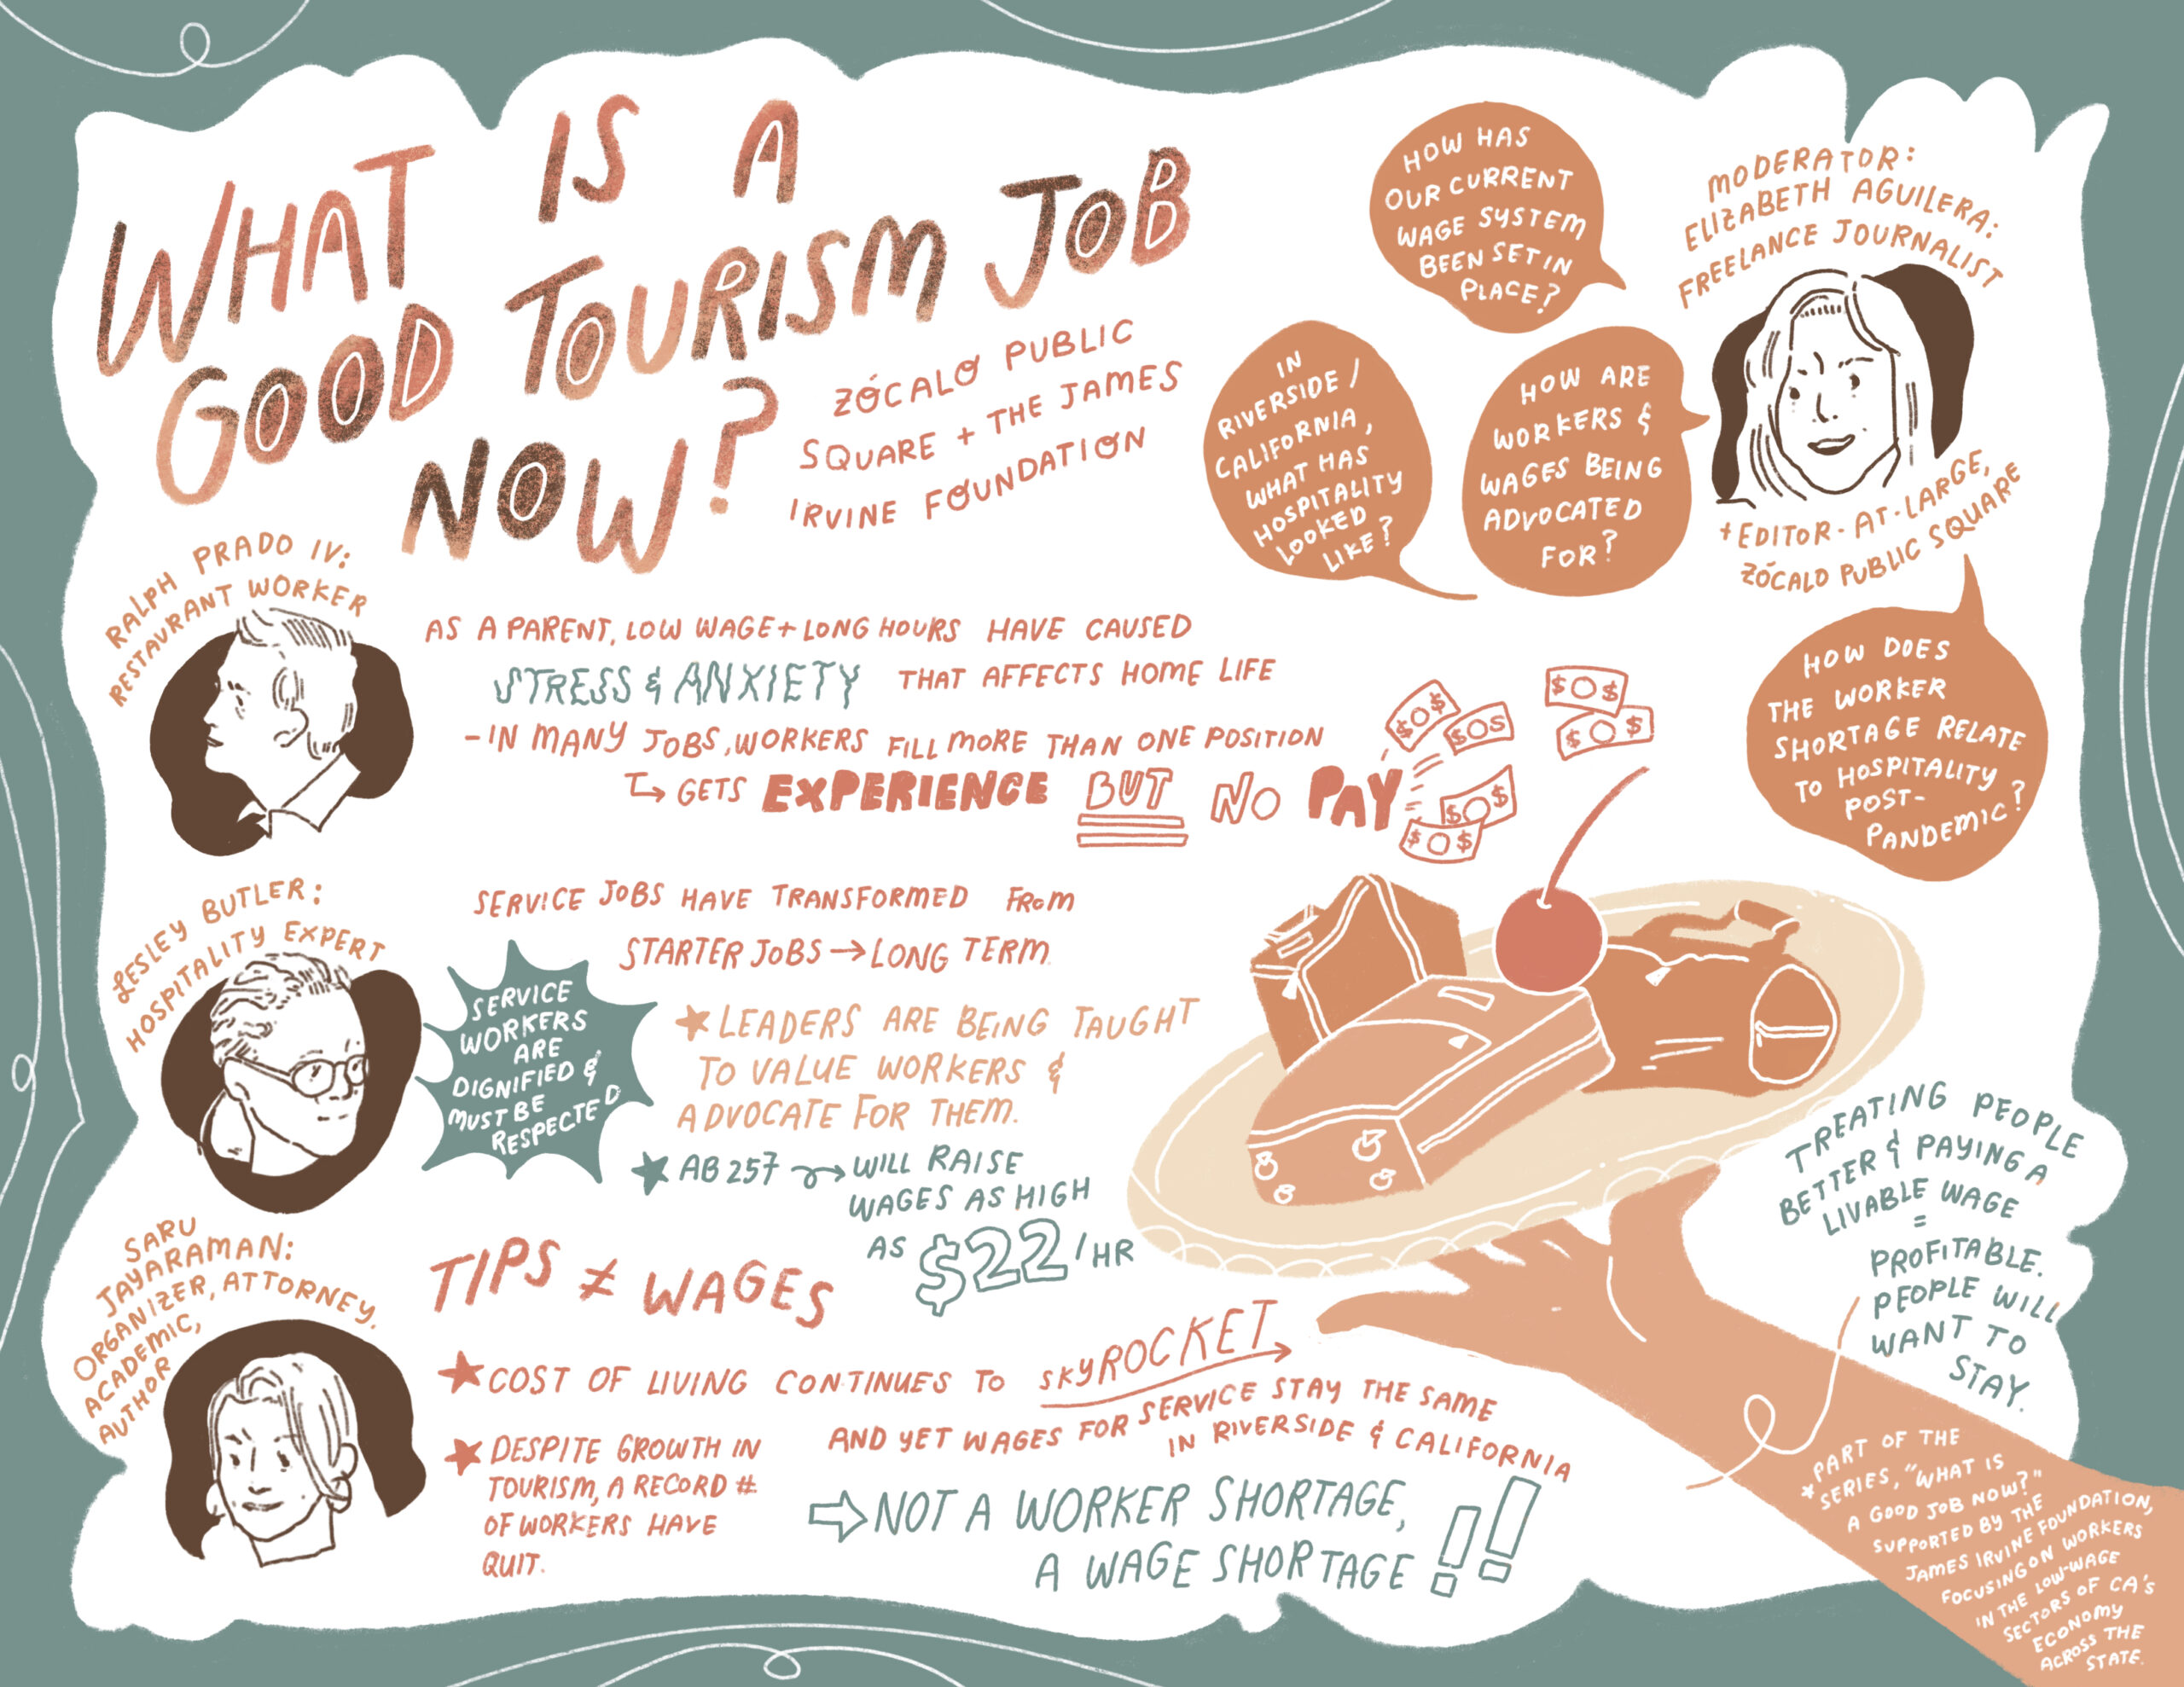 WHAT IS A
GOOD TOURISM JOB
NOW?
ZÓCALO PUBLIC
SQUARE + THE JAMES
IRVINE FOUNDATION
HOW HAS
OUR CURRENT
WAGE SYSTEM
BEEN SET IN
PLACE?
MODERATOR:
ELIZABETH AGUILERA:
FREELANCE JOURNALIST
+ EDITOR-AT-LARGE,
ZÓCALO PUBLIC SQUARE
IN
RIVERSIDE /
CALIFORNIA,
WHAT HAS
HOSPITALITY
LOOKED
LIKE?
HOW ARE
WORKERS &
WAGES BEING
ADVOCATED
FOR?
HOW DOES
THE WORKER
SHORTAGE RELATE
TO HOSPITALITY
POST-
PANDEMIC?
RALPH PRADO IV:
RESTAURANT WORKER
AS A PARENT, LOW WAGE + LONG HOURS HAVE CAUSED
STRESS & ANXIETY THAT AFFECTS HOME LIFE
- IN MANY JOBS, WORKERS FILL MORE THAN ONE POSITION
↳ GETS EXPERIENCE BUT NO PAY
$O$
$OS
$O$
$O$
$O$
$O$
LESLEY BUTLER:
HOSPITALITY EXPERT
SERVICE JOBS HAVE TRANSFORMED FROM
STARTER JOBS → LONG TERM
SERVICE
WORKERS
ARE
DIGNIFIED &
MUST BE
RESPECTED
★ LEADERS ARE BEING TAUGHT
TO VALUE WORKERS &
ADVOCATE FOR THEM.
★ AB 257 → WILL RAISE
WAGES AS HIGH
AS $22/HR
SARU
JAYARAMAN:
ORGANIZER, ATTORNEY,
ACADEMIC,
AUTHOR
TIPS ≠ WAGES
★ COST OF LIVING CONTINUES TO SKYROCKET
AND YET WAGES FOR SERVICE STAY THE SAME
IN RIVERSIDE & CALIFORNIA
★ DESPITE GROWTH IN
TOURISM, A RECORD #
OF WORKERS HAVE
QUIT.
⇨ NOT A WORKER SHORTAGE,
A WAGE SHORTAGE !!
TREATING PEOPLE
BETTER & PAYING A
LIVABLE WAGE
=
PROFITABLE.
PEOPLE WILL
WANT TO
STAY.
* PART OF THE
SERIES, "WHAT IS
A GOOD JOB NOW?"
SUPPORTED BY THE
JAMES IRVINE FOUNDATION,
FOCUSING ON WORKERS
IN THE LOW-WAGE
SECTORS OF CA'S
ECONOMY
ACROSS THE
STATE.